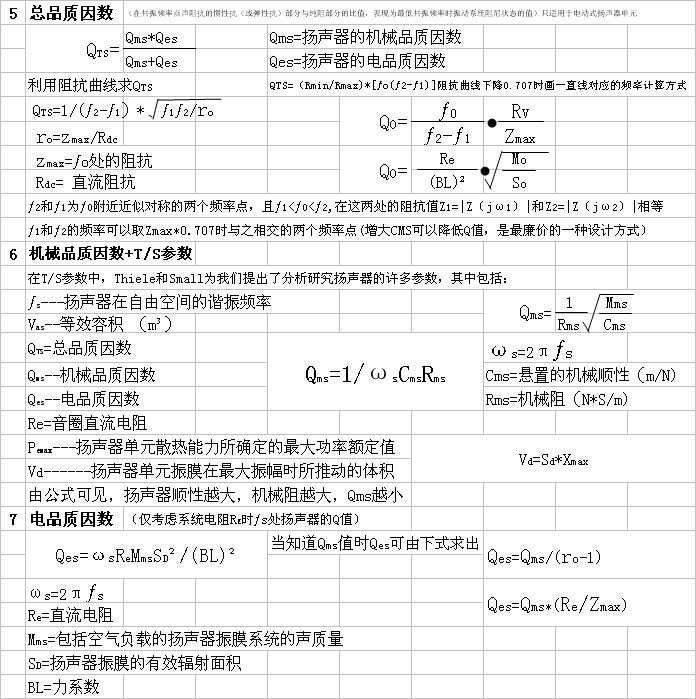 5 总品质因数 (在共振频率点声阻抗的惯性抗(或弹性抗)部分与纯阻部分的比值,表现为最低共振频率时振动系统阻尼状态的值)只适用于电动式扬声器单元
QTS= Qms*Qes / Qms+Qes
Qms=扬声器的机械品质因数
Qes=扬声器的电品质因数
利用阻抗曲线求QTS
QTS=(Rmin/Rmax)*[fo(f2-f1)]阻抗曲线下降0.707时画一直线对应的频率计算方式
QTS=1/(f2-f1) *√f1f2/ro
ro=Zmax/Rdc
Zmax=fo处的阻抗
Rdc= 直流阻抗
Qo= f0 / f2-f1 ● Rv / Zmax
Qo= Re / (BL)² ● √ Mo / So
f2和f1为f0附近近似对称的两个频率点,且f1<f0<f2,在这两处的阻抗值Z1=|Z(jω1)|和Z2=|Z(jω2)|相等
f1和f2的频率可以取Zmax*0.707时与之相交的两个频率点(增大CMS可以降低Q值,是最廉价的一种设计方式)
6 机械品质因数+T/S参数
在T/S参数中,Thiele和Small为我们提出了分析研究扬声器的许多参数,其中包括:
fs---扬声器在自由空间的谐振频率
Vas--等效容积 (m³)
QTS=总品质因数
Qms--机械品质因数
Qes--电品质因数
Re=音圈直流电阻
Pemax---扬声器单元散热能力所确定的最大功率额定值
Vd------扬声器单元振膜在最大振幅时所推动的体积
由公式可见,扬声器顺性越大,机械阻越大,Qms越小
Qms=1/ωsCmsRms
Qms= 1 / Rms √ Mms / Cms
ωs=2πfs
Cms=悬置的机械顺性(m/N)
Rms=机械阻(N*S/m)
Vd=Sd*Xmax
7 电品质因数 (仅考虑系统电阻RE时fs处扬声器的Q值)
Qes=ωsReMmsSD²/(BL)²
当知道Qms值时Qes可由下式求出
Qes=Qms/(ro-1)
Qes=Qms*(Re/Zmax)
ωs=2πfs
Re=直流电阻
Mms=包括空气负载的扬声器振膜系统的声质量
SD=扬声器振膜的有效辐射面积
BL=力系数